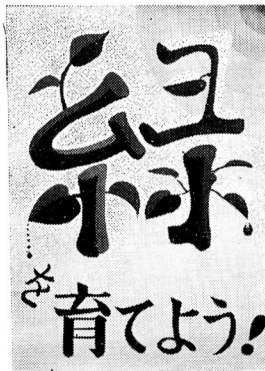 緑
を
育てよう!